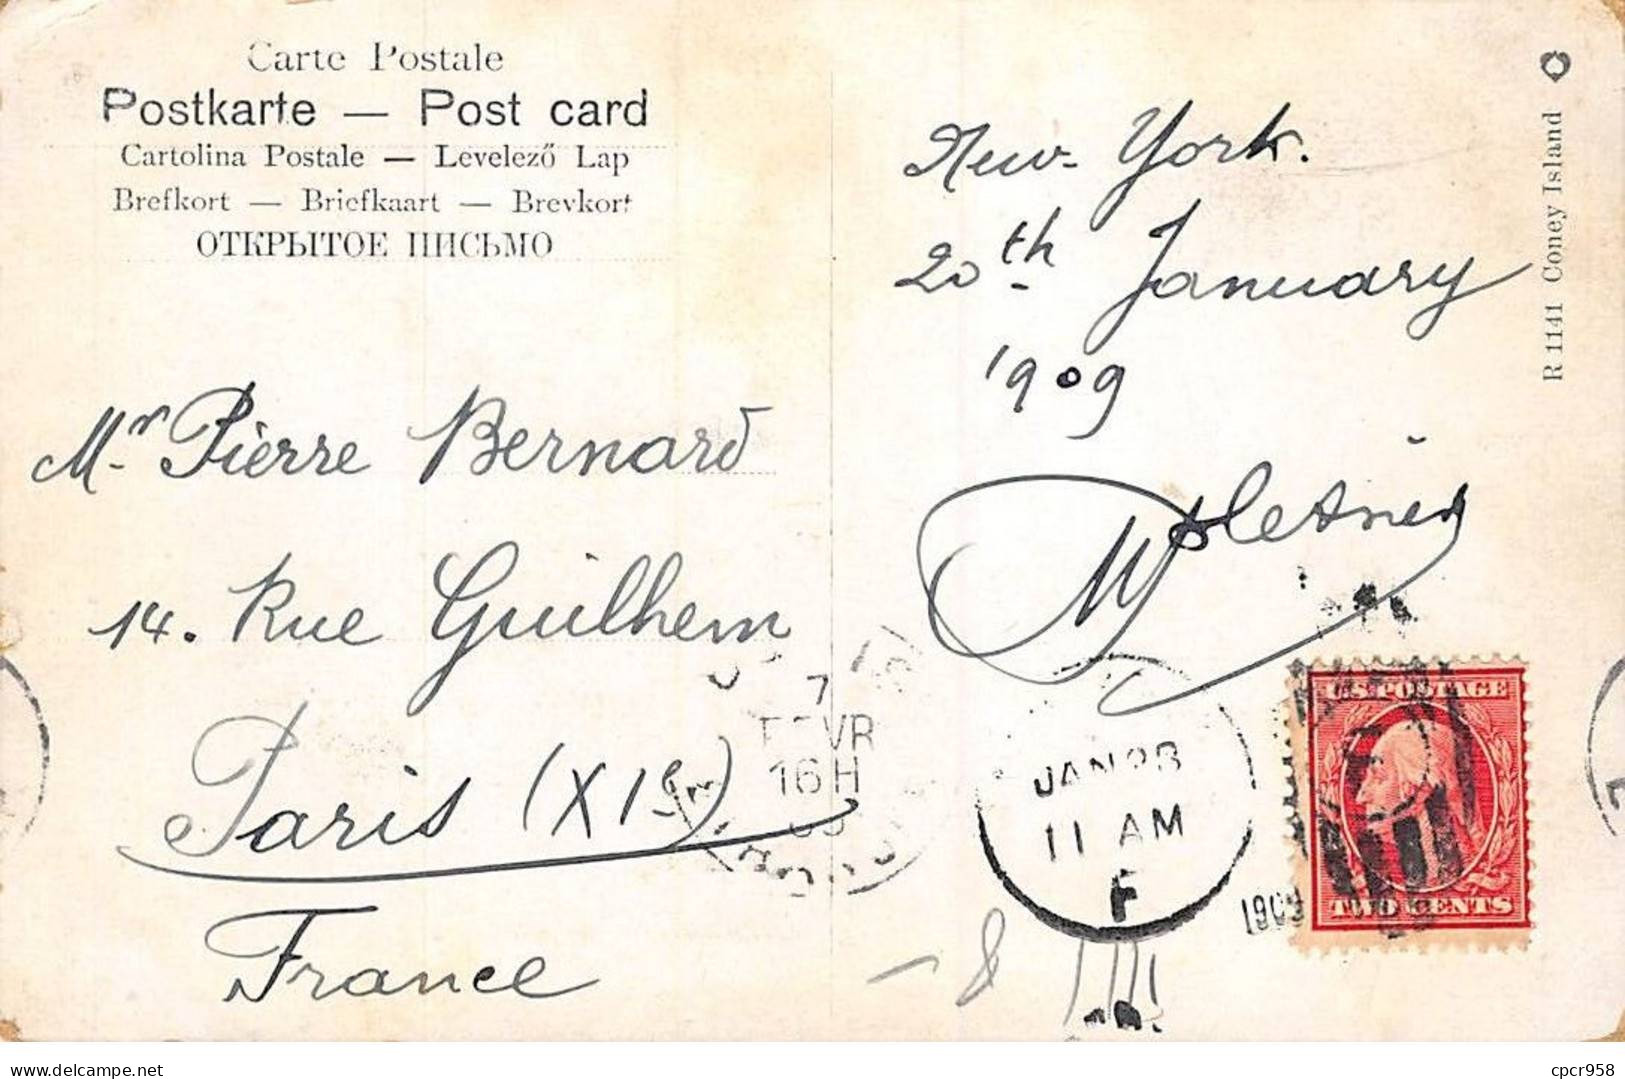 Carte Postale
Postkarte — Post card
Cartolina Postale — Levelező Lap
Brefkort — Briefkaart — Brevkort
ОТКРЫТОЕ ПИСЬМО
Mr Pierre Bernard
14. Rue Guilhem
Paris (XIe)
France
New-York.
20th January
1909
R 1141 Coney Island
7
FEVR
16H
JAN 28
11 AM
F
1909
U.S. POSTAGE
TWO CENTS
cpcr958